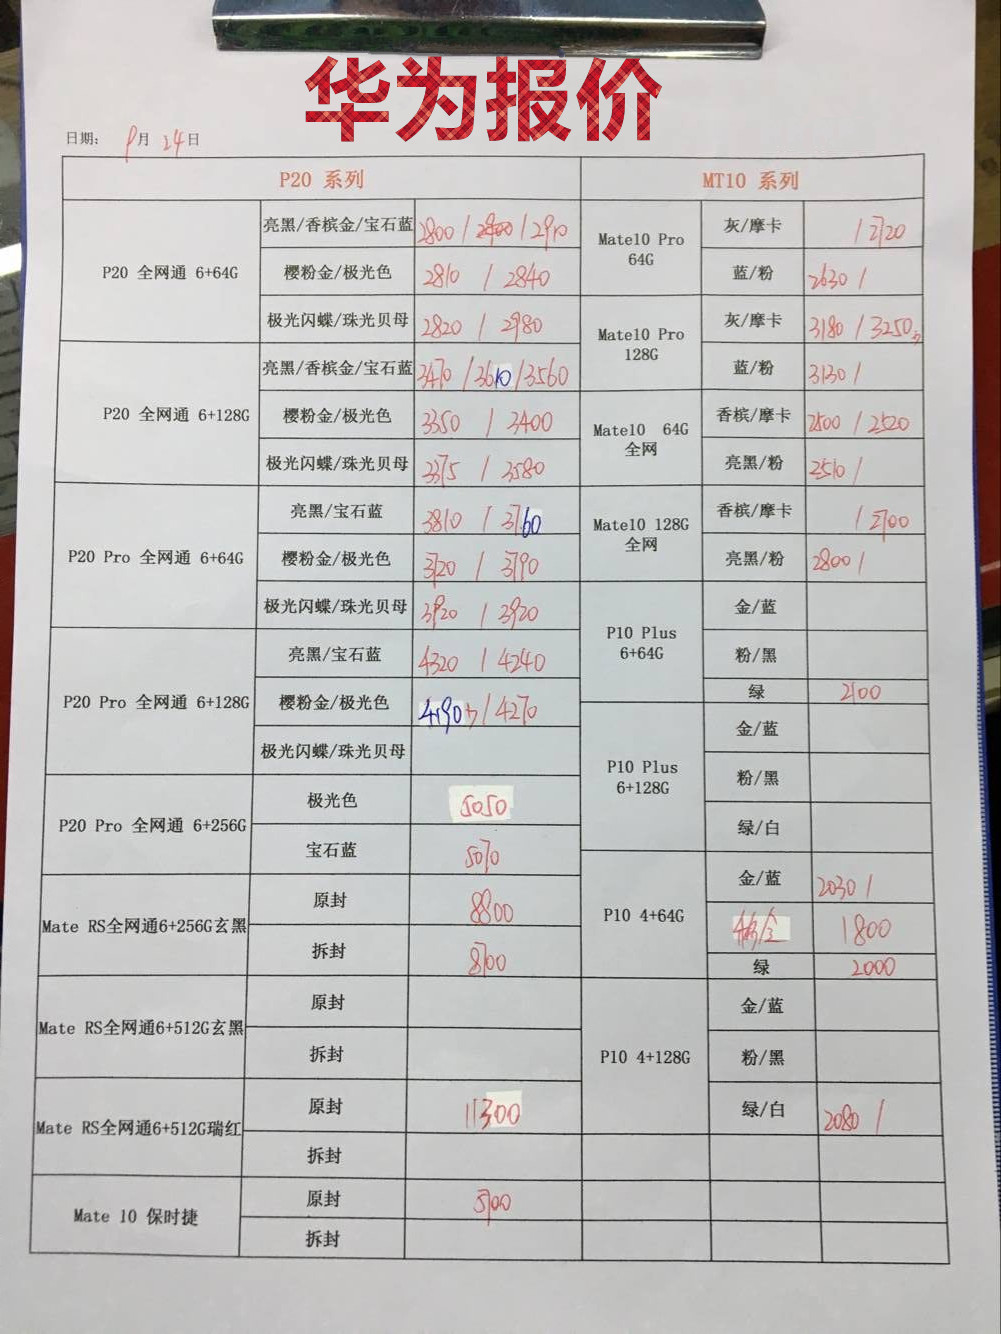 华为报价
日期: 9月24日
P20 系列
MT10 系列
P20 全网通 6+64G
亮黑/香槟金/宝石蓝 2800 / 2900 / 2910
樱粉金/极光色 2810 / 2840
极光闪蝶/珠光贝母 2820 / 2980
P20 全网通 6+128G
亮黑/香槟金/宝石蓝 3470 / 3610 / 3560
樱粉金/极光色 3350 / 3400
极光闪蝶/珠光贝母 3375 / 3580
P20 Pro 全网通 6+64G
亮黑/宝石蓝 3810 / 3760
樱粉金/极光色 3720 / 3790
极光闪蝶/珠光贝母 3920 / 3920
P20 Pro 全网通 6+128G
亮黑/宝石蓝 4320 / 4240
樱粉金/极光色 4190 / 4270
极光闪蝶/珠光贝母
P20 Pro 全网通 6+256G
极光色 5050
宝石蓝 5070
Mate RS全网通6+256G玄黑
原封 8800
拆封 8700
Mate RS全网通6+512G玄黑
原封
拆封
Mate RS全网通6+512G瑞红
原封 11300
拆封
Mate 10 保时捷
原封 5700
拆封
Mate10 Pro
64G
灰/摩卡 / 2720
蓝/粉 2630 /
Mate10 Pro
128G
灰/摩卡 3180 / 3250
蓝/粉 3130 /
Mate10 64G
全网
香槟/摩卡 2500 / 2520
亮黑/粉 2510 /
Mate10 128G
全网
香槟/摩卡 / 2700
亮黑/粉 2800 /
P10 Plus
6+64G
金/蓝
粉/黑
绿 2100
P10 Plus
6+128G
金/蓝
粉/黑
绿/白
P10 4+64G
金/蓝 2030 /
1800
绿 2000
P10 4+128G
金/蓝
粉/黑
绿/白 2080 /